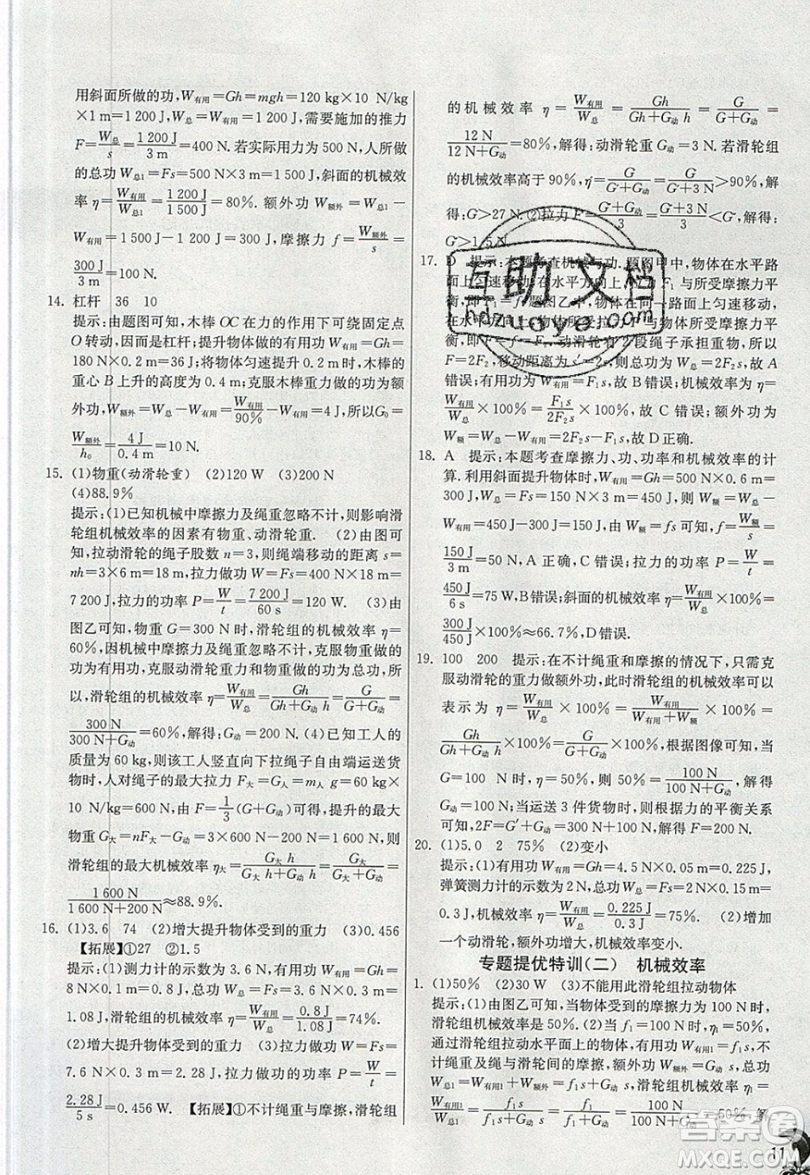 用斜面所做的功,W有用=Gh=mgh=120 kg×10 N/kg
×1 m=1 200 J,W总=W有用=1 200 J,需要施加的推力
F=W总/s=1 200 J/3 m=400 N.若实际用力为 500 N,人所做
的总功 W总1=Fs=500 N×3 m=1 500 J,斜面的机械效
率 η=W有用/W总1=1 200 J/1 500 J=80%.额外功 W额外=W总1-
W有用=1 500 J-1 200 J=300 J,摩擦力 f=W额外/s=
300 J/3 m=100 N.
14. 杠杆 36 10
提示:由题图可知,木棒 OC 在力的作用下可绕固定点
O 转动,因此是杠杆;提升物体做的有用功 W有用=Gh=
180 N×0.2 m=36 J;将物体匀速提升 0.2 m 时,木棒的
重心 A 上升的高度为 0.4 m;克服木棒重力做的功为额
外功,W额外=W有用/90%-W有用=4 J,所以 G0=
W额外/h0=4 J/0.4 m=10 N.
15. (1)物重(动滑轮重) (2)120 W (3)200 N
(4)88.9%
提示:(1)已知机械中摩擦力及绳重忽略不计,则影响滑
轮组机械效率的因素有物重、动滑轮重. (2)由图乙
可知,拉动滑轮的绳子股数 n=3,绳端移动的距离 s=
nh=3×6 m=18 m,拉力做功 W=Fs=400 N×18 m=
7 200 J,拉力的功率 P=W/t=7 200 J/60 s=120 W. (3)由
图乙可知,物重 G=300 N 时,滑轮组的机械效率 η=
60%,因机械中摩擦力及绳重忽略不计,克服物重做的
功为有用功,克服动滑轮重力和物重做的功为总功,所
以,滑轮组的机械效率 η=W有用/W总=Gh/(Gh+G动h)=G/(G+G动)=
300 N/(300 N+G动)=60%,解得:G动=200 N. (4)已知工人的
质量为 60 kg,则该工人竖直向下拉绳子自由端运送货
物时,人对绳子的最大拉力 F大=G人=m人g=60 kg×
10 N/kg=600 N,由 F=1/3(G+G动)可得,提升的最大
物重 G大=nF大-G动=3×600 N-200 N=1 600 N,则
滑轮组的最大机械效率 η大=G大h/(G大h+G动h)=G大/(G大+G动)=
1 600 N/(1 600 N+200 N)≈88.9%.
16. (1)3.6 74 (2)增大提升物体受到的重力 (3)0.456
【拓展】①27 ②1.5
提示:(1)测力计的示数为 3.6 N,有用功 W有用=Gh=
8 N×0.1 m=0.8 J,总功 W总=Fs=3.6 N×0.3 m=
1.08 J,滑轮组的机械效率 η=W有用/W总=0.8 J/1.08 J≈74%.
(2)增大提升物体受到的重力 (3)拉力做功 W=Fs=
7.6 N×0.3 m=2.28 J,则拉力做功的功率 P=W/t=
2.28 J/5 s=0.456 W. 【拓展】①不计绳重与摩擦,滑轮组
的机械效率 η=W有用/W总=Gh/(Gh+G动h)=G/(G+G动)=
12 N/(12 N+G动)=80%,解得:动滑轮重 G动=3 N.若滑轮组的
机械效率高于 90%,η=G/(G+G动)=G/(G+3 N)>90%,解
得:G>27 N. ②拉力 F=(G'+G动)/3=(G'+3 N)/3<G',解
得:G'>1.5 N.
17. D 提示:本题考查机械与功.题图甲中,物体在水平路
面上匀速移动,
衡,则
F=2F2,移动距离为 s,则总功
错误;有用功 W有用=F1s,故 B 错误;机械效率 η=
W有用/W总×100%=F1s/2F2s×100%,故 C 错误;额外功为
W额外=W总-W有用=2F2s-F1s,故 D 正确.
18. A 提示:本题考查摩擦力、功、功率和机械效率的计
算.利用斜面提升物体,W有用=Gh=500 N×0.6 m=
300 J,W总=Fs=150 N×3 m=450 J,则 W额=W总-
W有用=450 J-300 J=150 J,由 W额=fs 可知,f=W额/s=
150 J/3 m=50 N,A 正确,C 错误;拉力的功率 P=W/t=
450 J/6 s=75 W,B 错误;斜面的机械效率 η=W有用/W总×100%=
300 J/450 J×100%≈66.7%,D 错误.
19. 100 200 提示:在不计绳重和摩擦的情况下,只需克
服动滑轮的重力做额外功,此时滑轮组的机械效率可以
表示为 η=W有用/W总×100%=W有用/(W有用+W额)×100%=
Gh/(Gh+G动h)×100%=G/(G+G动)×100%,根据图像可知,当
G=100 N 时,η=50%,即 50%=100 N/(100 N+G动)×100%,解
得 G动=100 N;当运送 3 件货物时,根据力的平衡关系可
知,2F=G'+G动=300 N+100 N,解得 F=200 N.
20. (1)5.0 2 75% (2)变小
提示:(1)有用功 W有用=Gh=4.5 N×0.05 m=0.225 J,
弹簧测力计的示数为 2 N,总功 W总=Fs=2 N×0.15 m=
0.3 J,机械效率 η=W有用/W总=0.225 J/0.3 J=75%. (2)增加
一个动滑轮,额外功增大,机械效率变小.
专题提优特训(二) 机械效率
1. (1)50% (2)30 W (3)不能用此滑轮组拉动物体
提示:(1)由图像知,当物体受到的摩擦力为 100 N 时,机
械效率是 50%. (2)当 f1=100 N 时,η1=50%,
通过滑轮组拉动水平面上的物体,有用功 W有用=fs物,不
计绳重及绳与滑轮间的摩擦,W额外=G动s物,则
W总=W有用+W额外=f1s物+G动s物,机械效率 η1=
W有用1/W总1=f1s物/(f1s物+G动s物)=f1/(f1+G动)=100 N/(100 N+G动)=50%,解
互助文档
hdzuoye.com
答案圈
MXQE.COM
11